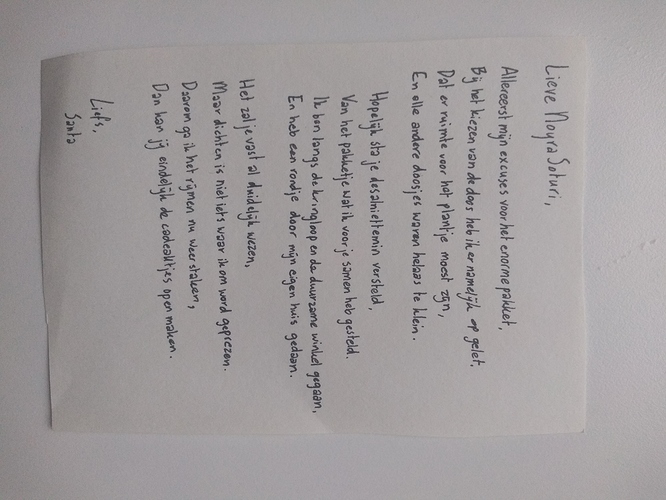 Lieve Noyra Soturi,
Allereerst mijn excuses voor het enorme pakket,
Bij het kiezen van de doos heb ik er namelijk op gelet,
Dat er ruimte voor het plantje moest zijn,
En alle andere doosjes waren helaas te klein.
Hopelijk sta je desalniettemin versteld,
Van het pakketje wat ik voor je samen heb gesteld.
Ik ben langs de kringloop en de duurzame winkel gegaan,
En heb een rondje door mijn eigen huis gedaan.
Het zal je vast al duidelijk wezen,
Maar dichten is niet iets waar ik om word geprezen.
Daarom ga ik het rijmen nu weer staken,
Dan kan jij eindelijk de cadeautjes open maken.
Liefs,
Santa